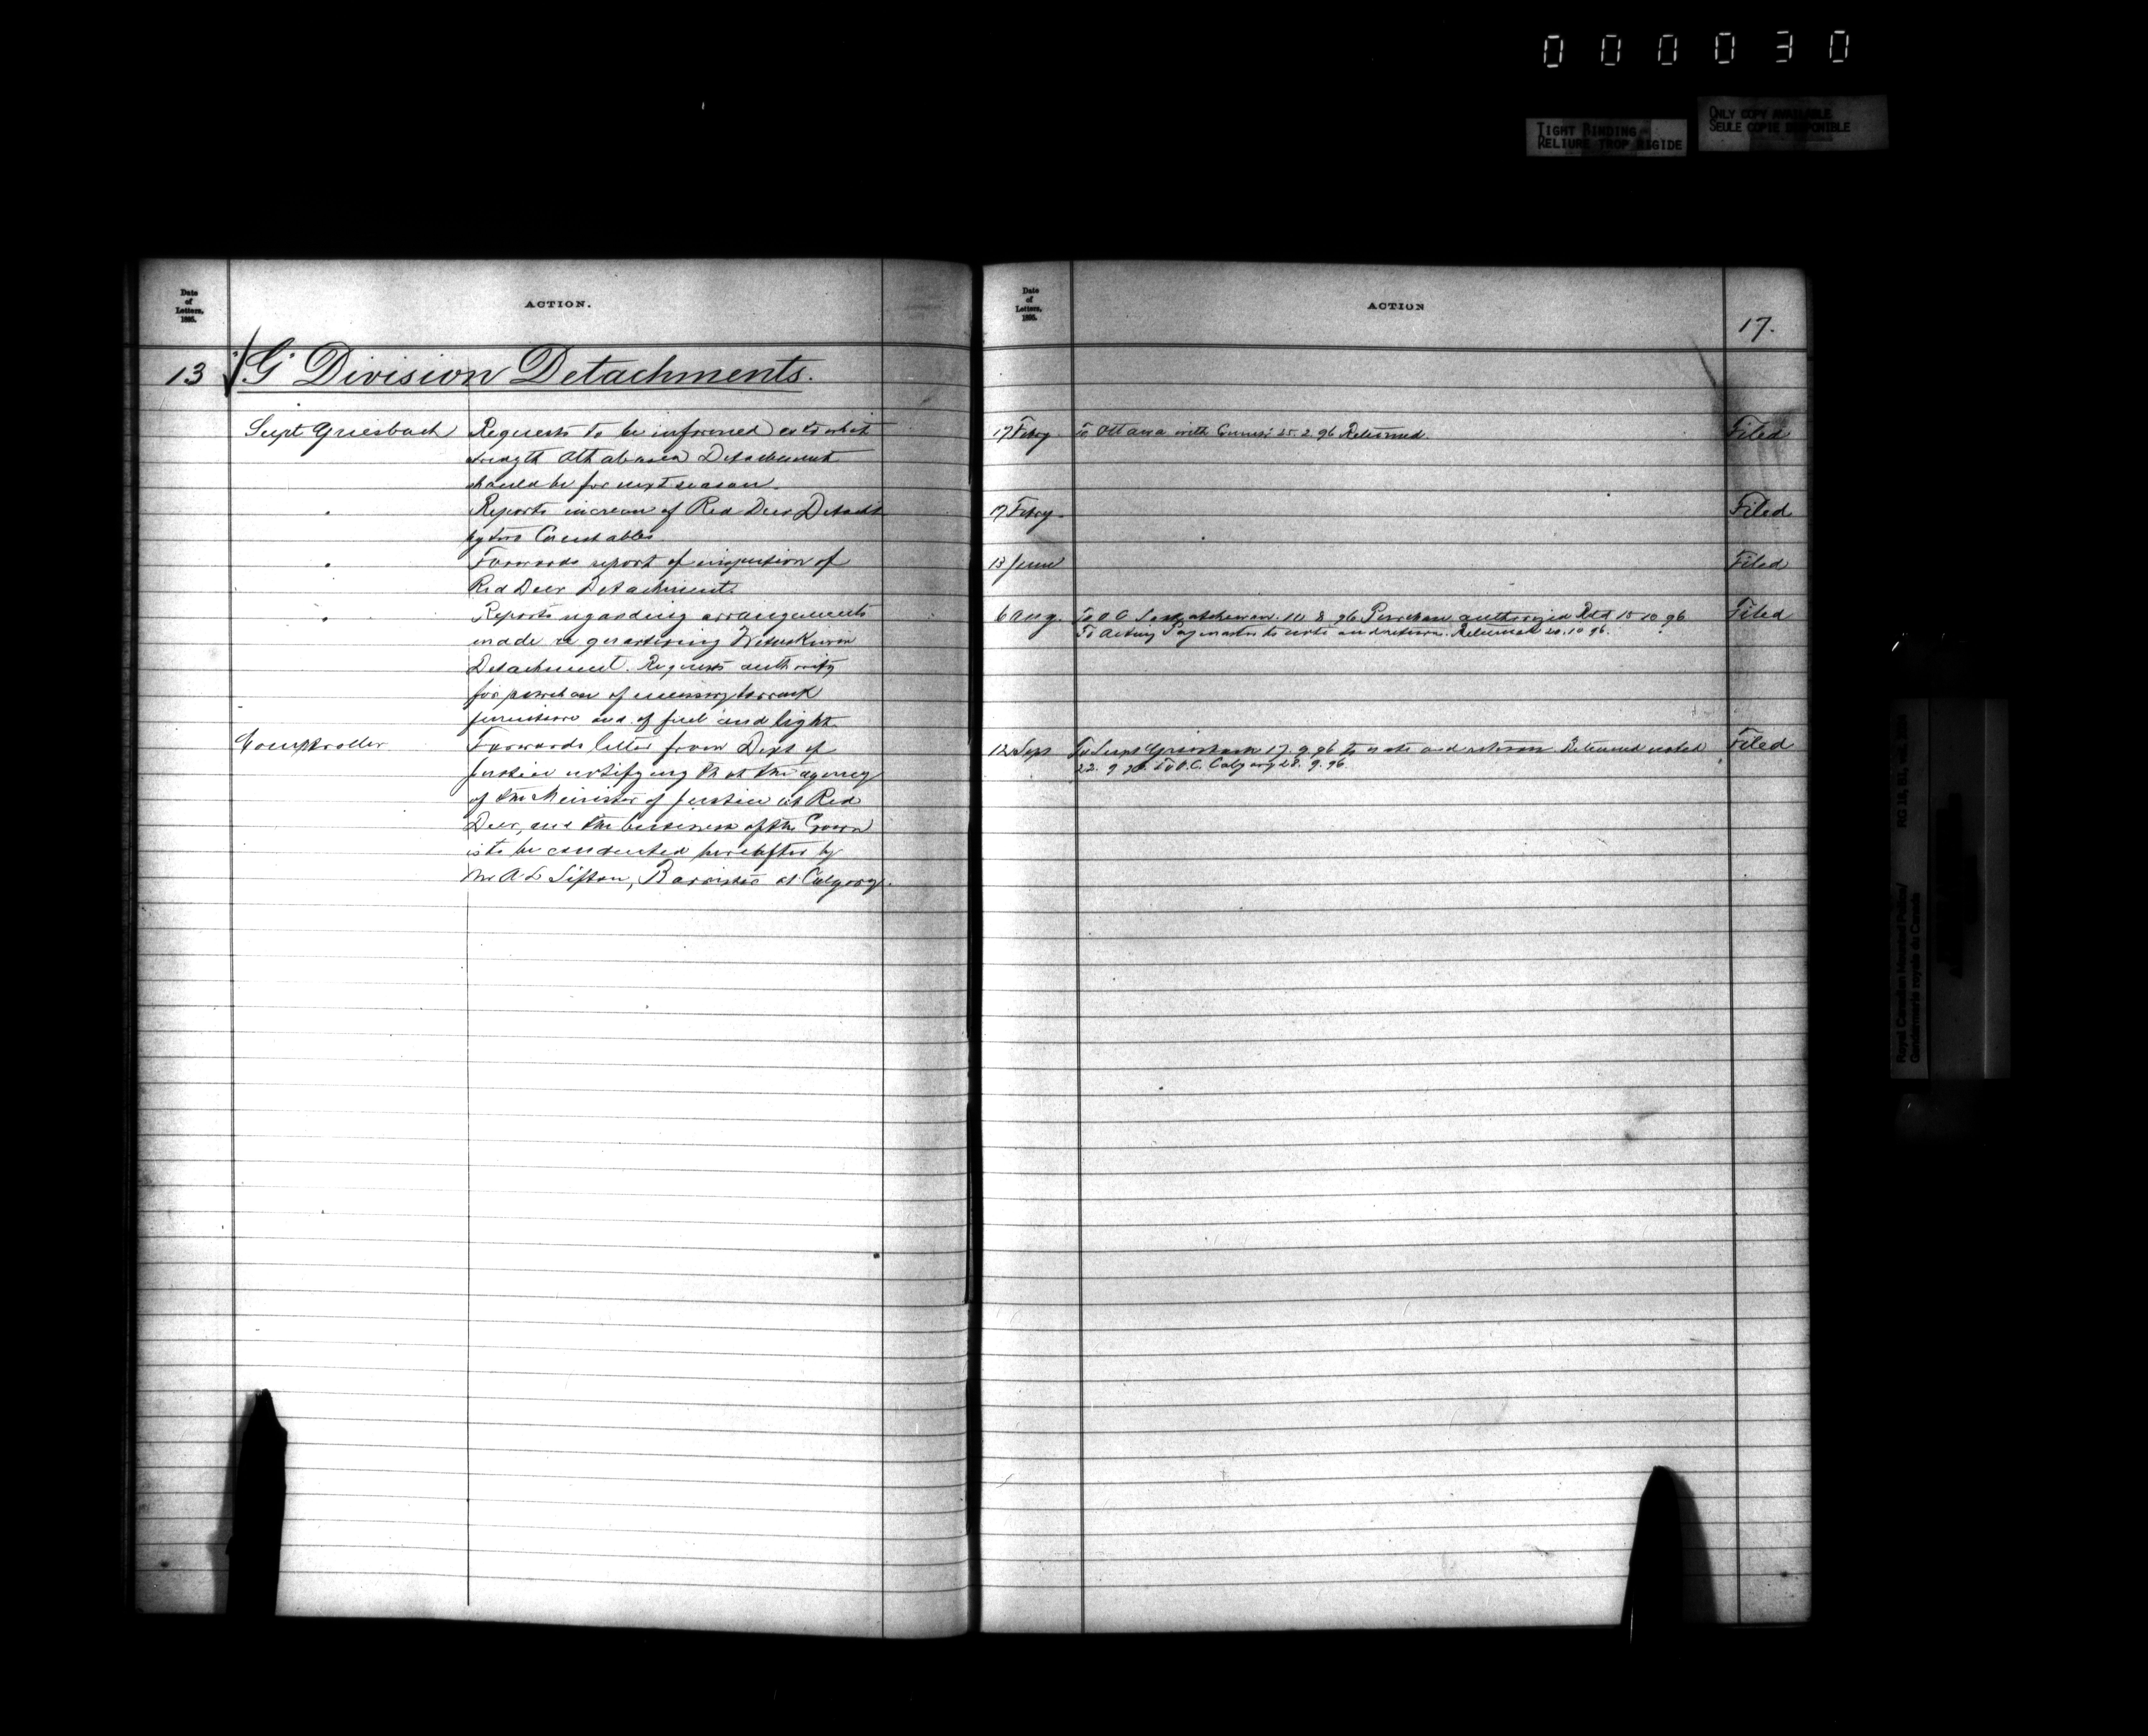 000030
TIGHT BINDING
RELIURE TROP RIGIDE
ONLY COPY AVAILABLE
SEULE COPIE DISPONIBLE
Date
of
Letters,
1895.
ACTION.
13 "G" Division Detachments.
Supt Griesbach
Requests to be informed as to what
strength Athabasca Detachment
should be for next season.
"
Reports increase of Red Deer Detacht
by two Constables
"
Forwards report of inspection of
Red Deer Detachment.
"
Reports regarding arrangements
made re quartering Wetaskiwin
Detachment. Requests authority
for purchase of necessary barrack
furniture and of fuel and light.
Comptroller
Forwards letter from Dept of
Justice notifying that the agency
of the Minister of Justice at Red
Deer, and the business of the Crown
is to be conducted hereafter by
Mr A L Sifton, Barrister at Calgary.
Date
of
Letters,
1895.
ACTION
17.
17 Febry. To Ottawa with 25.2.96 Returned. Filed
17 Febry. Filed
13 June Filed
6 Aug. To O C Saskatchewan. 10 8 96 Purchase authorized Rtd 15 10 96 Filed
To Acting Paymaster to note and return. Returned 20.10 96.
12 Sept To Supt Griesbach 17.9.96 to note and return. Returned noted Filed
22. 9 96. To O.C. Calgary 28. 9. 96
Royal Canadian Mounted Police/
Gendarmerie royale du Canada
RG 18, B1,